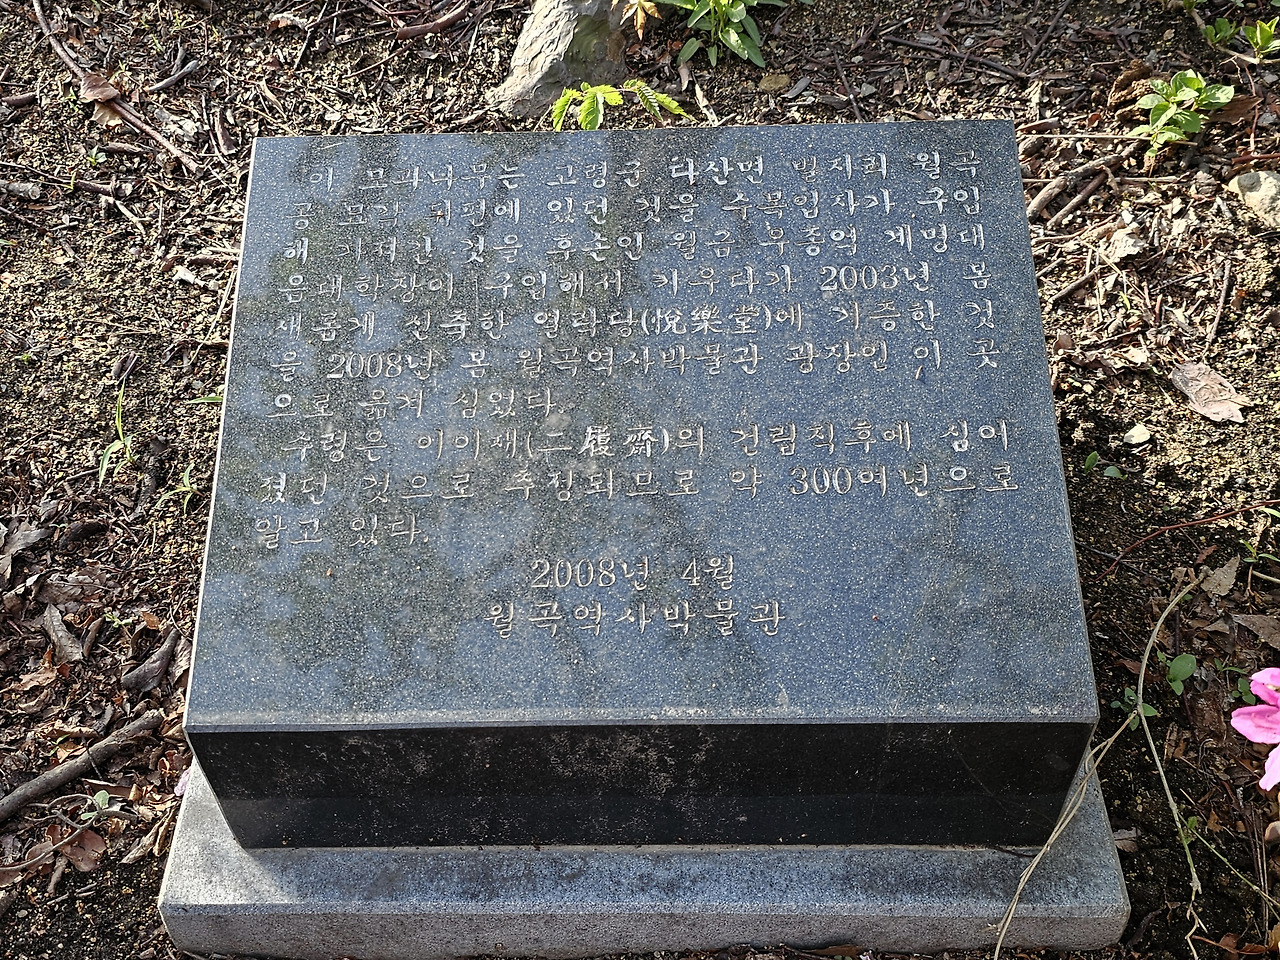 이 모과나무는 고령군 다산면 벌지희 월곡
공 묘각 뒤편에 있던 것을 수목업자가 구입
해 가져간 것을 후손인 월금 우종억 계명대
음대학장이 구입해서 키우다가 2003년 봄
새롭게 신축한 열락당(悅樂堂)에 기증한 것
을 2008년 봄 월곡역사박물관 광장인 이 곳
으로 옮겨 심었다.
수령은 이이재(二履齋)의 건립직후에 심어
졌던 것으로 추정되므로 약 300여년으로
알고 있다.
2008년 4월
월곡역사박물관